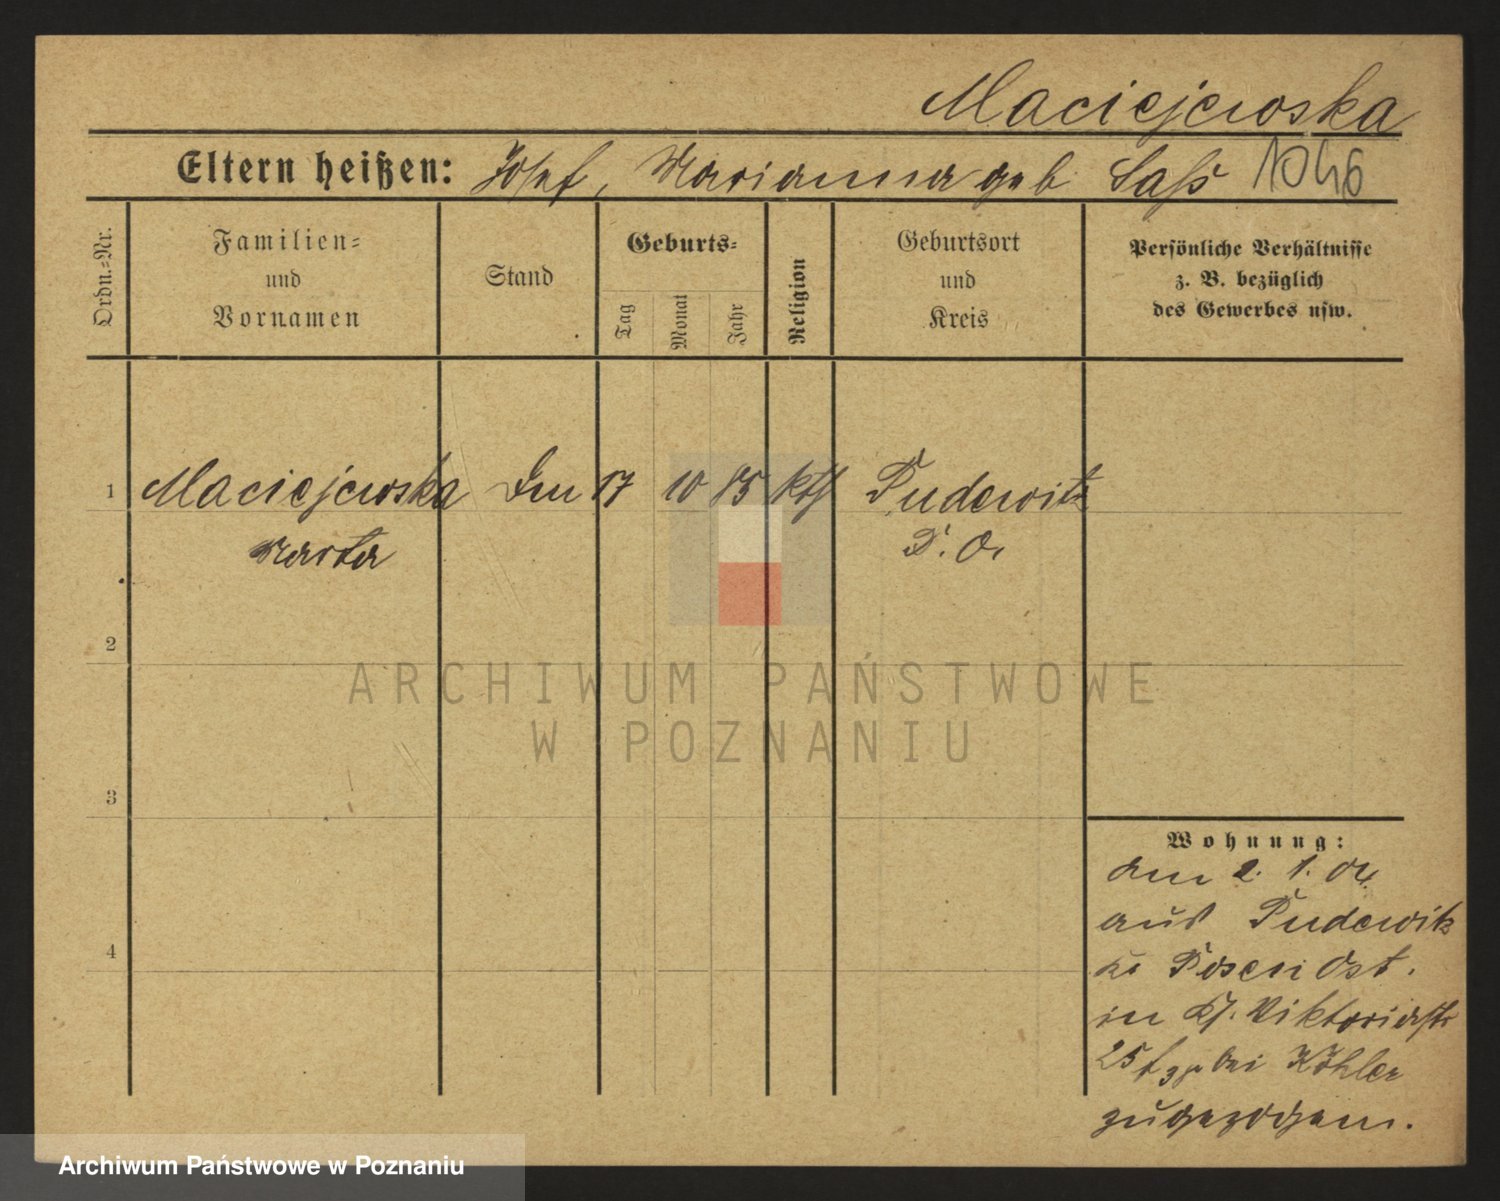 Maciejewska
Eltern heißen: Josef, Marianna geb Saß 1046
Ordn.-Nr.
Familien-
und
Vornamen
Stand
Geburts-
Tag
Monat
Jahr
Religion
Geburtsort
und
Kreis
Persönliche Verhältnisse
z. B. bezüglich
des Gewerbes usw.
1 Maciejewska 17 10 85 kth Pudewitz
Marta P. O.
2
3
4
Wohnung:
am 2. 1. 04
aus Pudewitz
Kr Posen Ost.
in Viktoriastr
25 bei Köhler
zugezogen.
ARCHIWUM PAŃSTWOWE
W POZNANIU
Archiwum Państwowe w Poznaniu